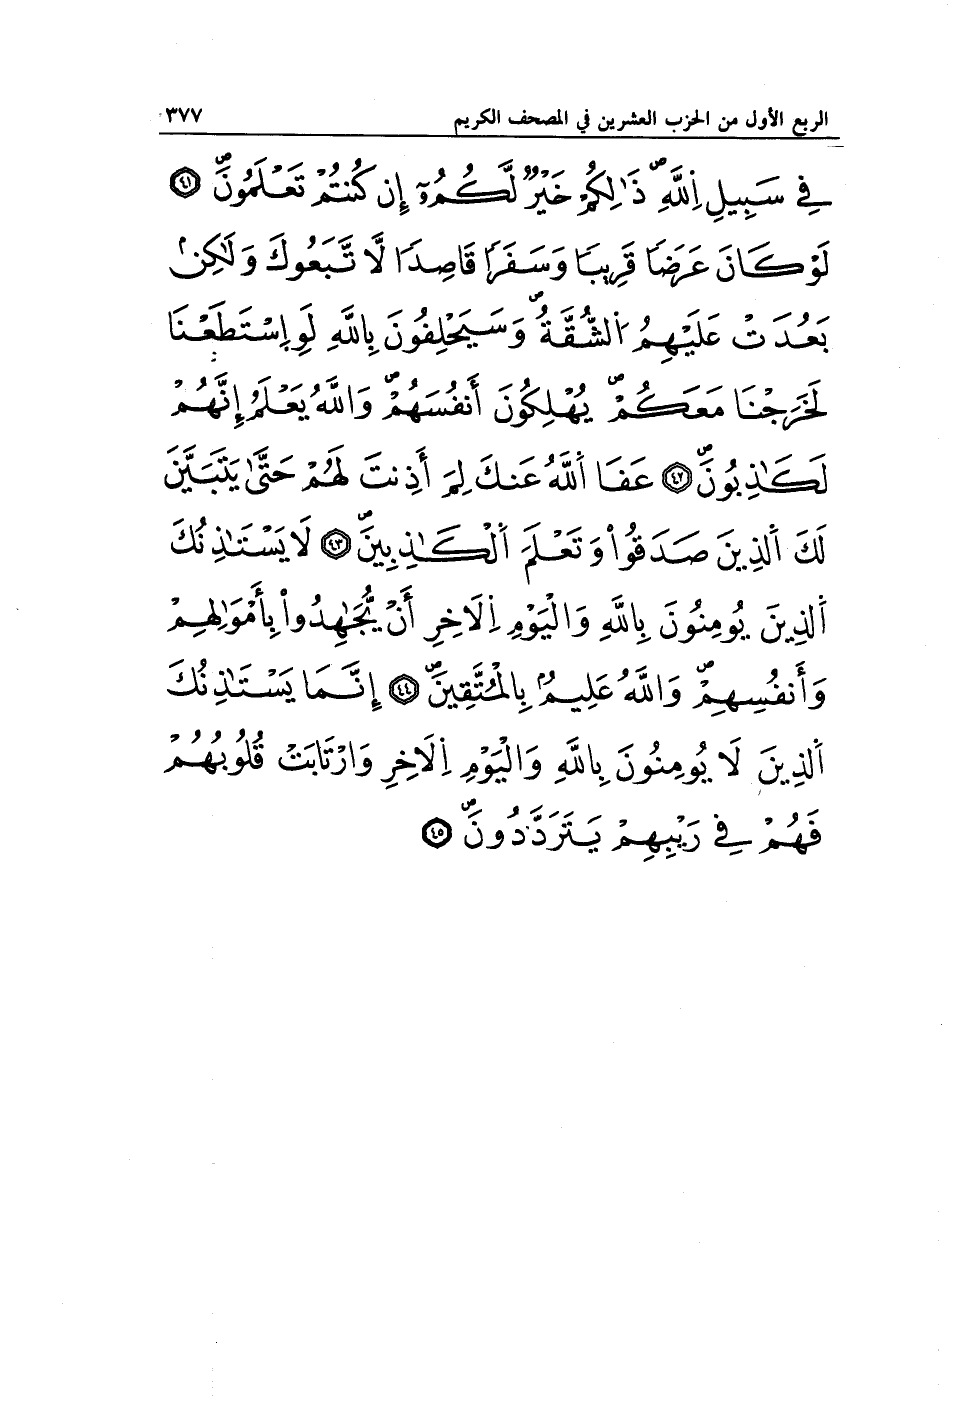 الربع الأول من الحزب العشرين في المصحف الكريم ٣٧٧
فِے سَبِيلِ اِللَّهِۖ ذَٰلِكُمْ خَيْرٞ لَّكُمُۥٓ إِن كُنتُمْ تَعْلَمُونَۖ ٤١
لَوْ كَانَ عَرَضاٗ قَرِيباٗ وَسَفَراٗ قَاصِداٗ لَّا تَّبَعُوكَ وَلَٰكِنۢ
بَعُدَتْ عَلَيْهِمُ اُلشُّقَّةُۖ وَسَيَحْلِفُونَ بِاللَّهِ لَوِ اِسْتَطَعْنَا
لَخَرَجْنَا مَعَكُمْۖ يُهْلِكُونَ أَنفُسَهُمْۖ وَاللَّهُ يَعْلَمُ إِنَّهُمْ
لَكَٰذِبُونَۖ ٤٢ عَفَا اَللَّهُ عَنكَ لِمَ أَذِنتَ لَهُمْ حَتَّىٰ يَتَبَيَّنَ
لَكَ اَلذِينَ صَدَقُواْ وَتَعْلَمَ اَلْكَٰذِبِينَۖ ٤٣ لَا يَسْتَٰذِنُكَ
اَلذِينَ يُومِنُونَ بِاللَّهِ وَالْيَوْمِ اِلَاخِرِ أَنْ يُّجَٰهِدُواْ بِأَمْوَٰلِهِمْ
وَأَنفُسِهِمْۖ وَاللَّهُ عَلِيمُۢ بِالْمُتَّقِينَۖ ٤٤ إِنَّمَا يَسْتَٰذِنُكَ
اَلذِينَ لَا يُومِنُونَ بِاللَّهِ وَالْيَوْمِ اِلَاخِرِ وَارْتَابَتْ قُلُوبُهُمْ
فَهُمْ فِے رَيْبِهِمْ يَتَرَدَّدُونَۖ ٤٥